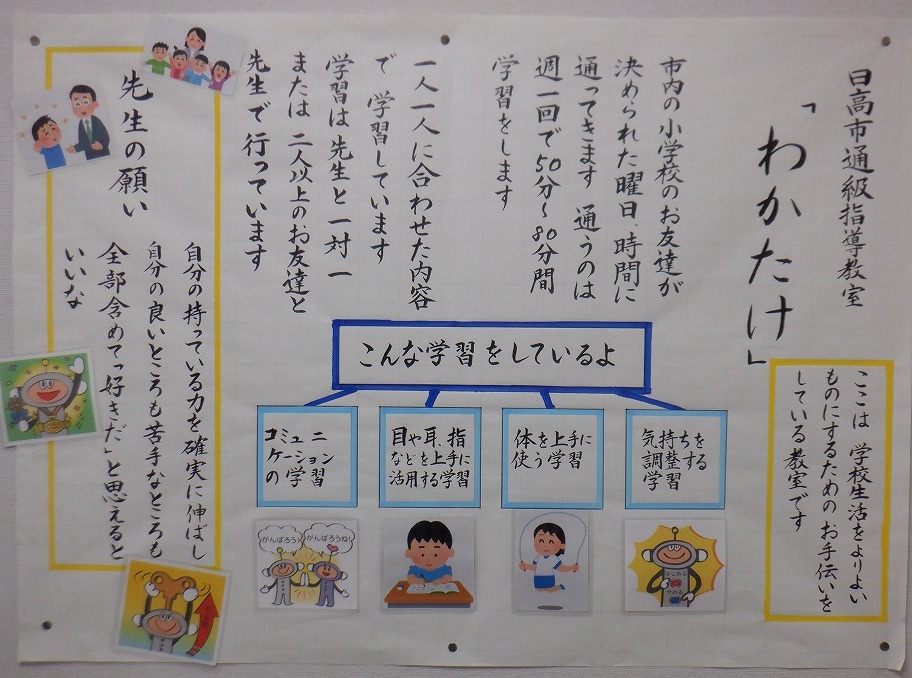 日高市通級指導教室
「わかたけ」
ここは 学校生活をよりよい
ものにするための お手伝いを
している 教室です
市内の小学校のお友達が
決められた曜日、時間に
通ってきます 通うのは
週一回で50分～80分間
学習をします
一人一人に合わせた内容
で 学習しています
学習は先生と一対一
または 二人以上のお友達と
先生で 行っています
こんな学習をしているよ
気持ちを
調整する
学習
体を上手に
使う学習
目や耳、指
などを上手に
活用する学習
コミュニ
ケーション
の学習
がんばろう!
がんばろうね!
はじめる
やめる
先生の願い
自分の持っている力を確実に伸ばし
自分の良いところも苦手なところも
全部含めて「好きだ」と思えると
いいな